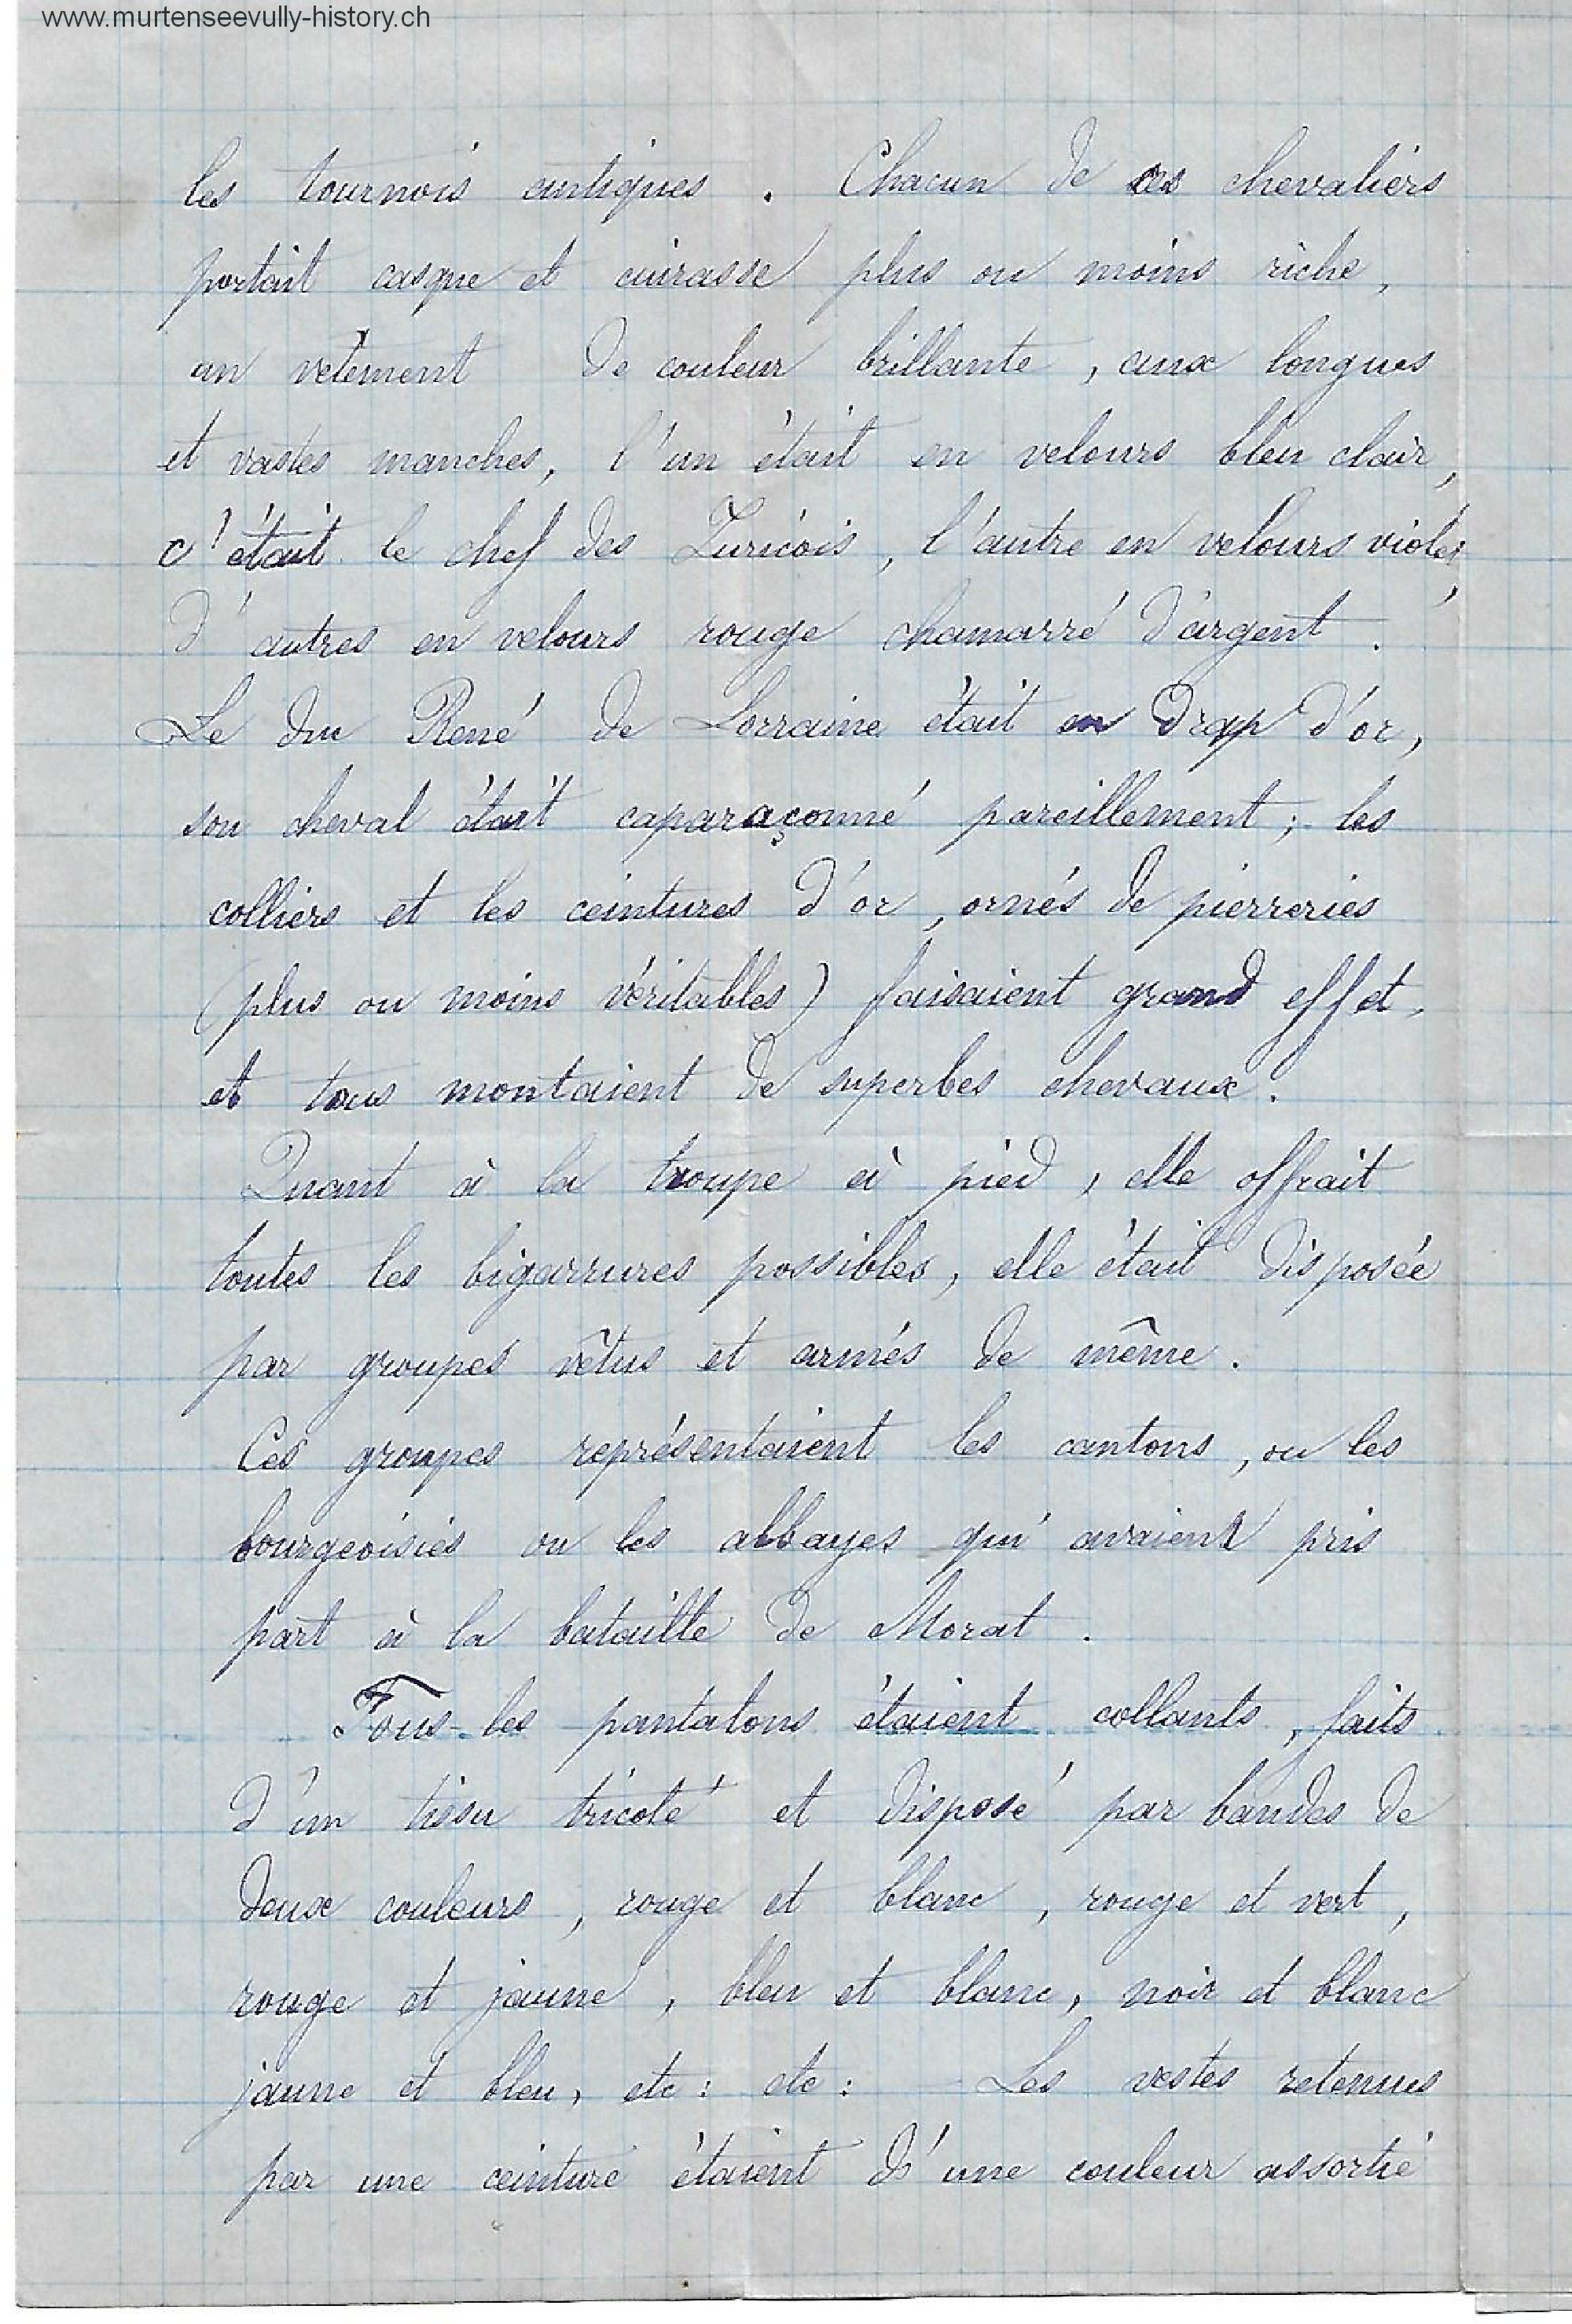 www.murtenseevully-history.ch
les tournois antiques. Chacun de ces chevaliers
portait casque et cuirasse plus ou moins riche,
un vêtement de couleur brillante, aux longues
et vastes manches, l'un était en velours bleu clair,
c'était le chef des Zuricois, l'autre en velours violet,
d'autres en velours rouge chamarré d'argent.
Le duc René de Lorraine était en drap d'or,
son cheval était caparaçonné pareillement; les
colliers et les ceintures d'or, ornés de pierreries
(plus ou moins véritables) faisaient grand effet,
et tous montaient de superbes chevaux.
Quant à la troupe à pied, elle offrait
toutes les bigarrures possibles, elle était disposée
par groupes vêtus et armés de même.
Ces groupes représentaient les cantons, ou les
bourgeoisies ou les abbayes qui avaient pris
part à la bataille de Morat.
Tous les pantalons étaient collants, faits
d'un tissu tricoté et disposé par bandes de
deux couleurs, rouge et blanc, rouge et vert,
rouge et jaune, bleu et blanc, noir et blanc
jaune et bleu, etc: etc: Les vestes retenues
par une ceinture étaient d'une couleur assortie